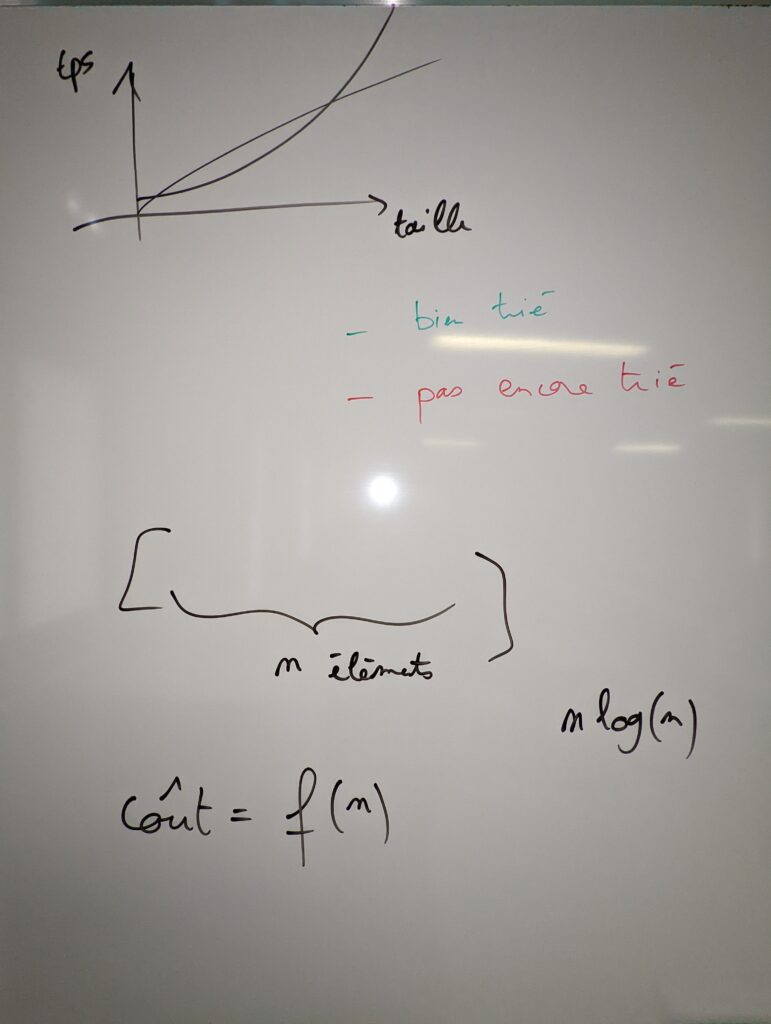 tps
taille
- bien trié
- pas encore trié
n éléments
n log(n)
coût = f(n)